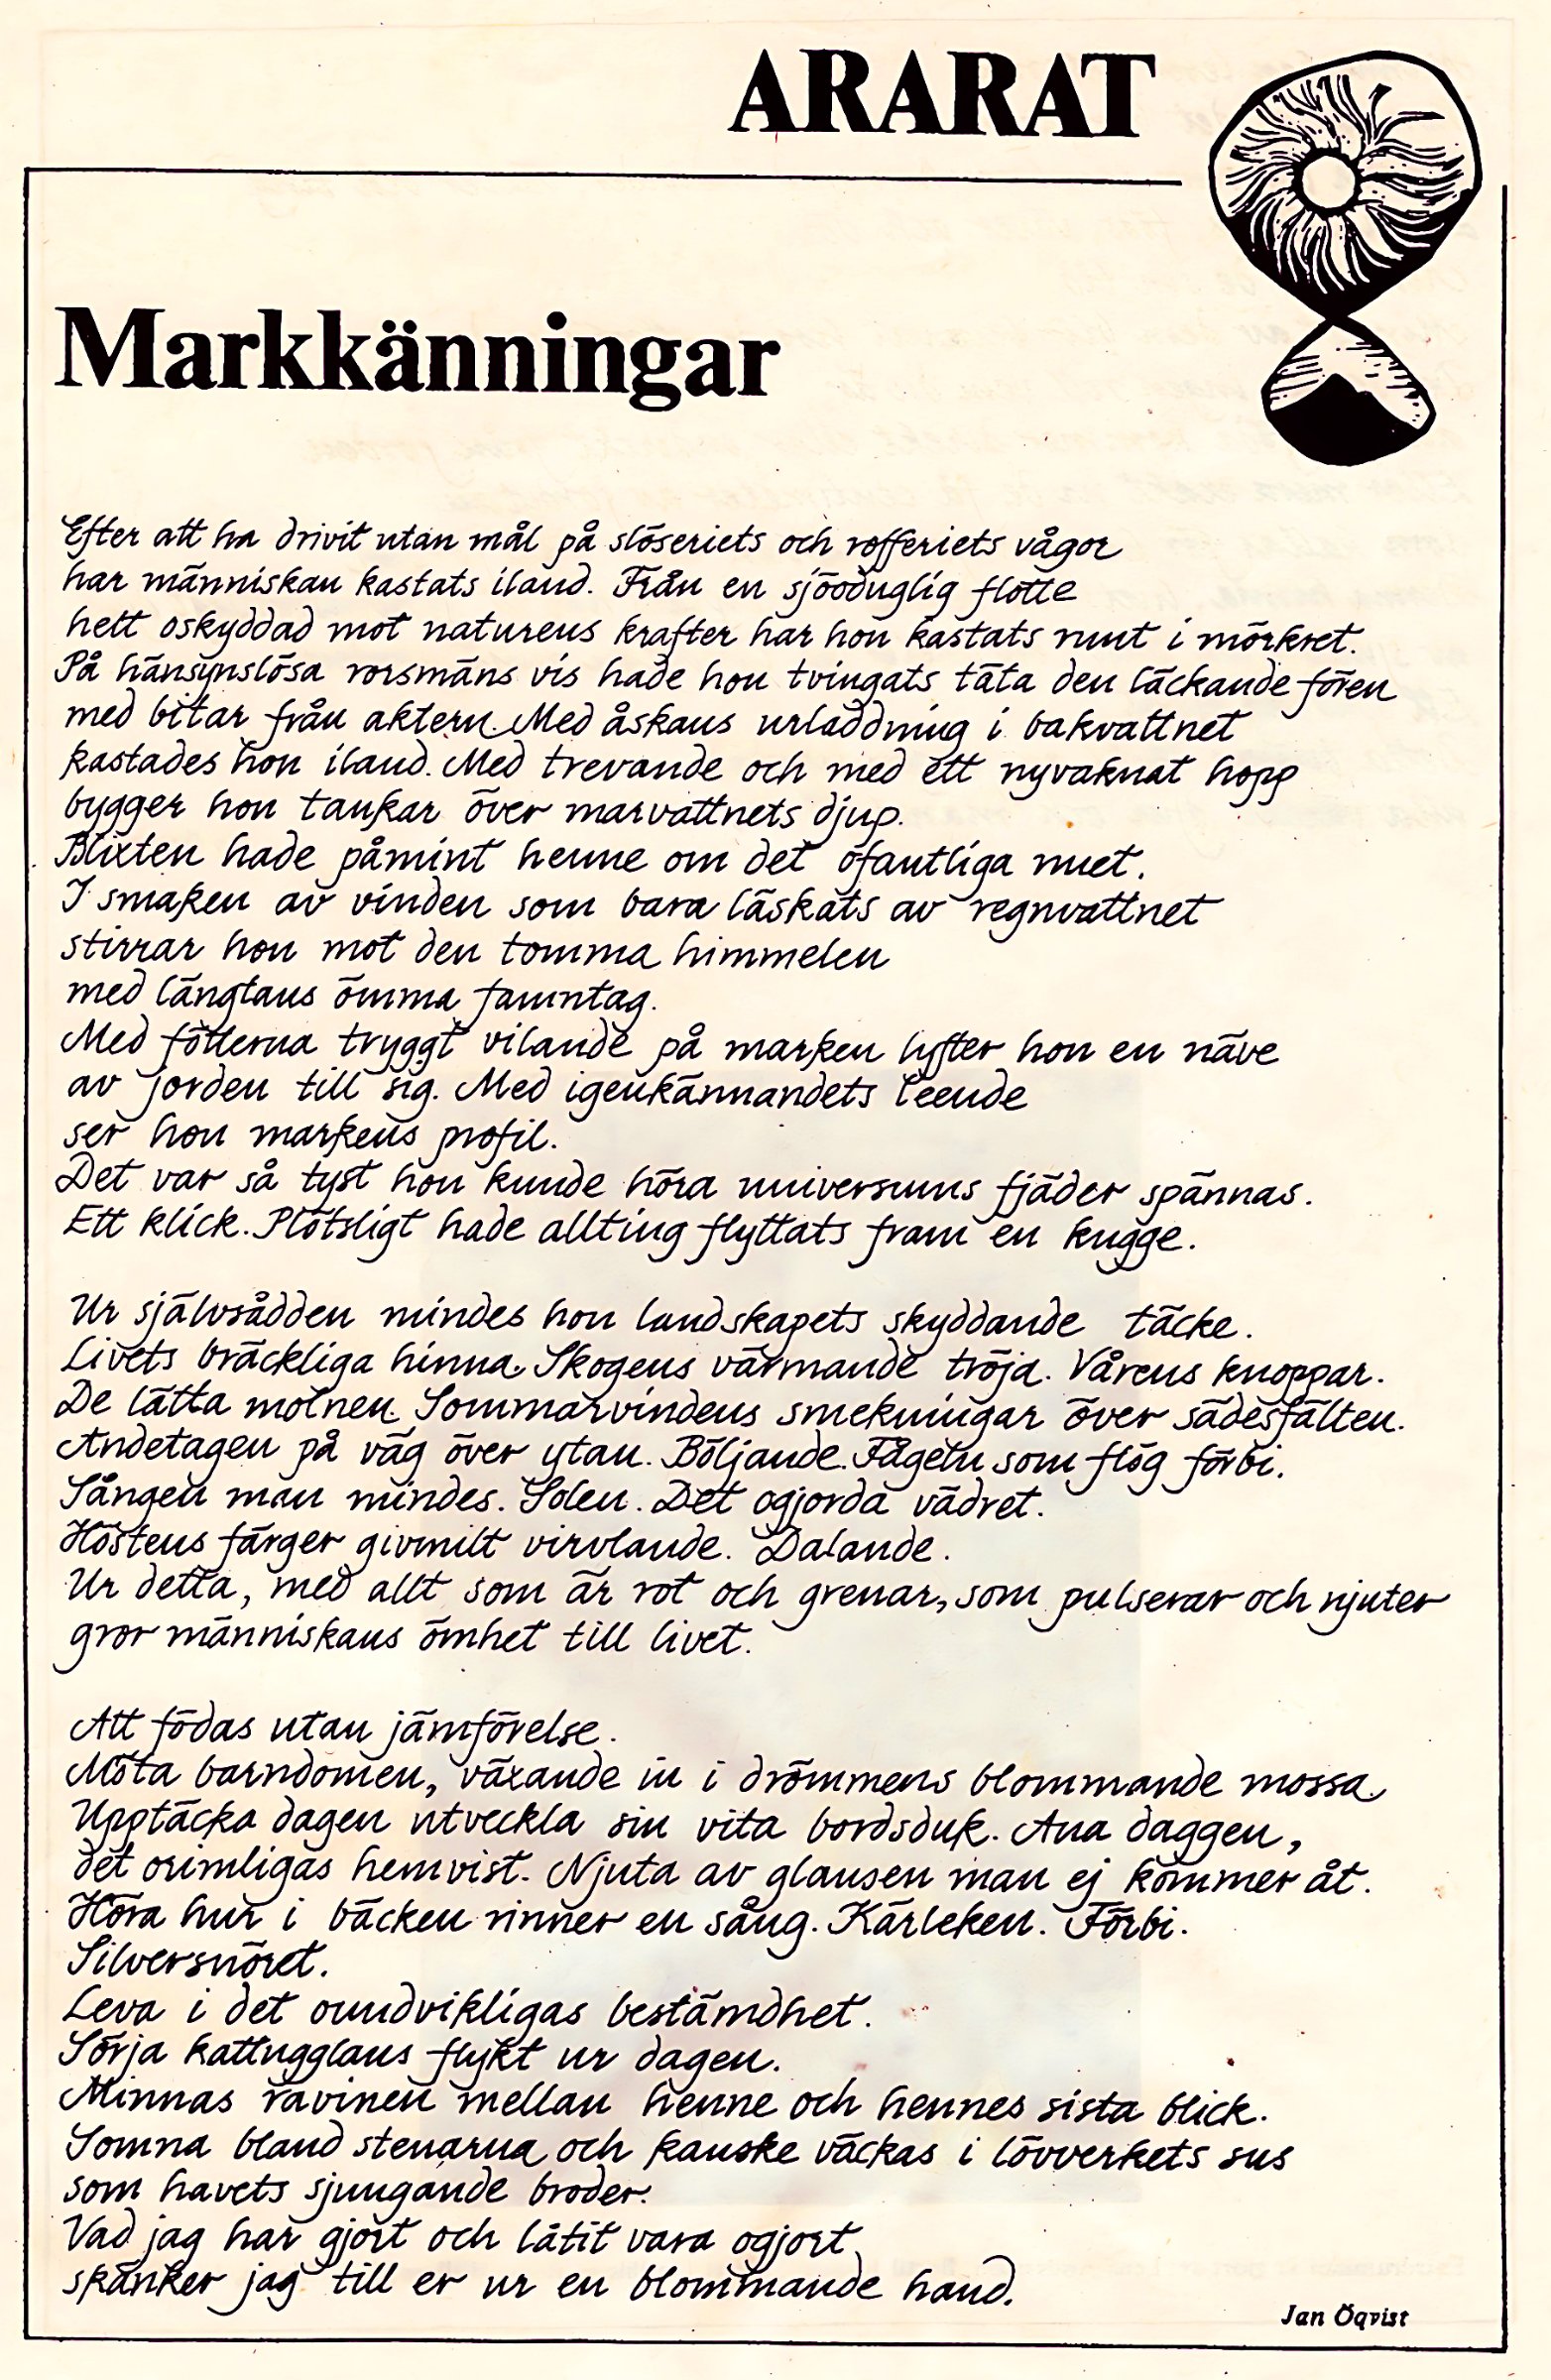 ARARAT
Markkänningar
Efter att ha drivit utan mål på slöseriets och rofferiets vågor
har människan kastats iland. Från en sjöoduglig flotte
helt oskyddad mot naturens krafter har hon kastats runt i mörkret.
På hänsynslösa rorsmäns vis hade hon tvingats täta den läckande fören
med bitar från aktern. Med åskans urladdning i bakvattnet
kastades hon iland. Med trevande och med ett nyvaknat hopp
bygger hon tankar över marvattnets djup.
Blixten hade påmint henne om det ofantliga nuet.
I smaken av vinden som bara läskats av regnvattnet
stirrar hon mot den tomma himmelen
med längtans ömma famntag.
Med fötterna tryggt vilande på marken lyfter hon en näve
av jorden till sig. Med igenkännandets leende
ser hon markens profil.
Det var så tyst hon kunde höra universums fjäder spännas.
Ett klick. Plötsligt hade allting flyttats fram en kugge.
Ur självsådden mindes hon landskapets skyddande täcke.
Livets bräckliga hinna. Skogens värmande tröja. Vårens knoppar.
De lätta molnen. Sommarvindens smekningar över sädesfälten.
Andetagen på väg över ytan. Böljande. Fågeln som flög förbi.
Sången man mindes. Solen. Det ogjorda vädret.
Höstens färger givmilt virvlande. Dalande.
Ur detta, med allt som är rot och grenar, som pulserar och njuter
gror människans ömhet till livet.
Att födas utan jämförelse.
Möta barndomen, växande in i drömmens blommande mossa.
Upptäcka dagen utveckla sin vita bordsduk. Ana daggen,
det orimligas hemvist. Njuta av glansen man ej kommer åt.
Höra hur i bäcken rinner en sång. Kärleken. Förbi.
Silversnöret.
Leva i det oundvikligas bestämdhet.
Sörja kattugglans flykt ur dagen.
Minnas ravinen mellan henne och hennes sista blick.
Somna bland stenarna och kanske väckas i lövverkets sus
som havets sjungande broder.
Vad jag har gjort och låtit vara ogjort
skänker jag till er ur en blommande hand.
Jan Öqvist